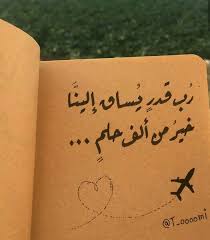 رُب قدرٍ يُساق إلينَّا
خيرُ من ألف حلمٍ ...
@T_oooomi